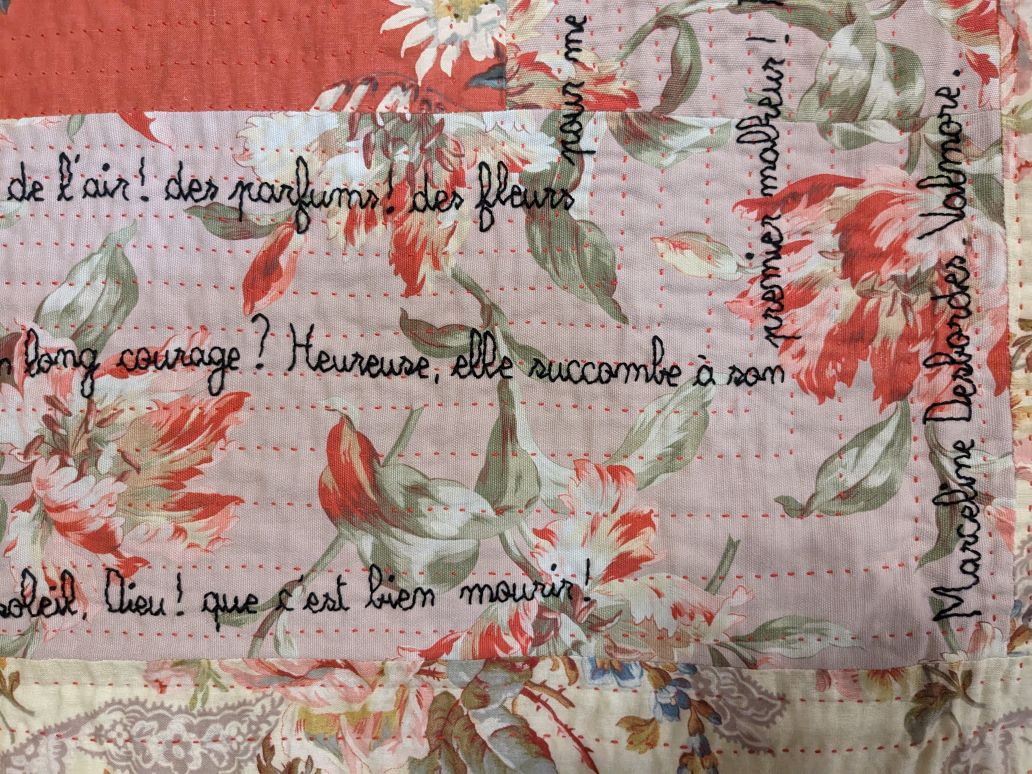 de l'air! des parfums! des fleurs
long courage? Heureuse, elle succombe à son
soleil, Dieu! que c'est bien mourir!
pour me
premier malheur!
Marceline Desbordes-Valmore.